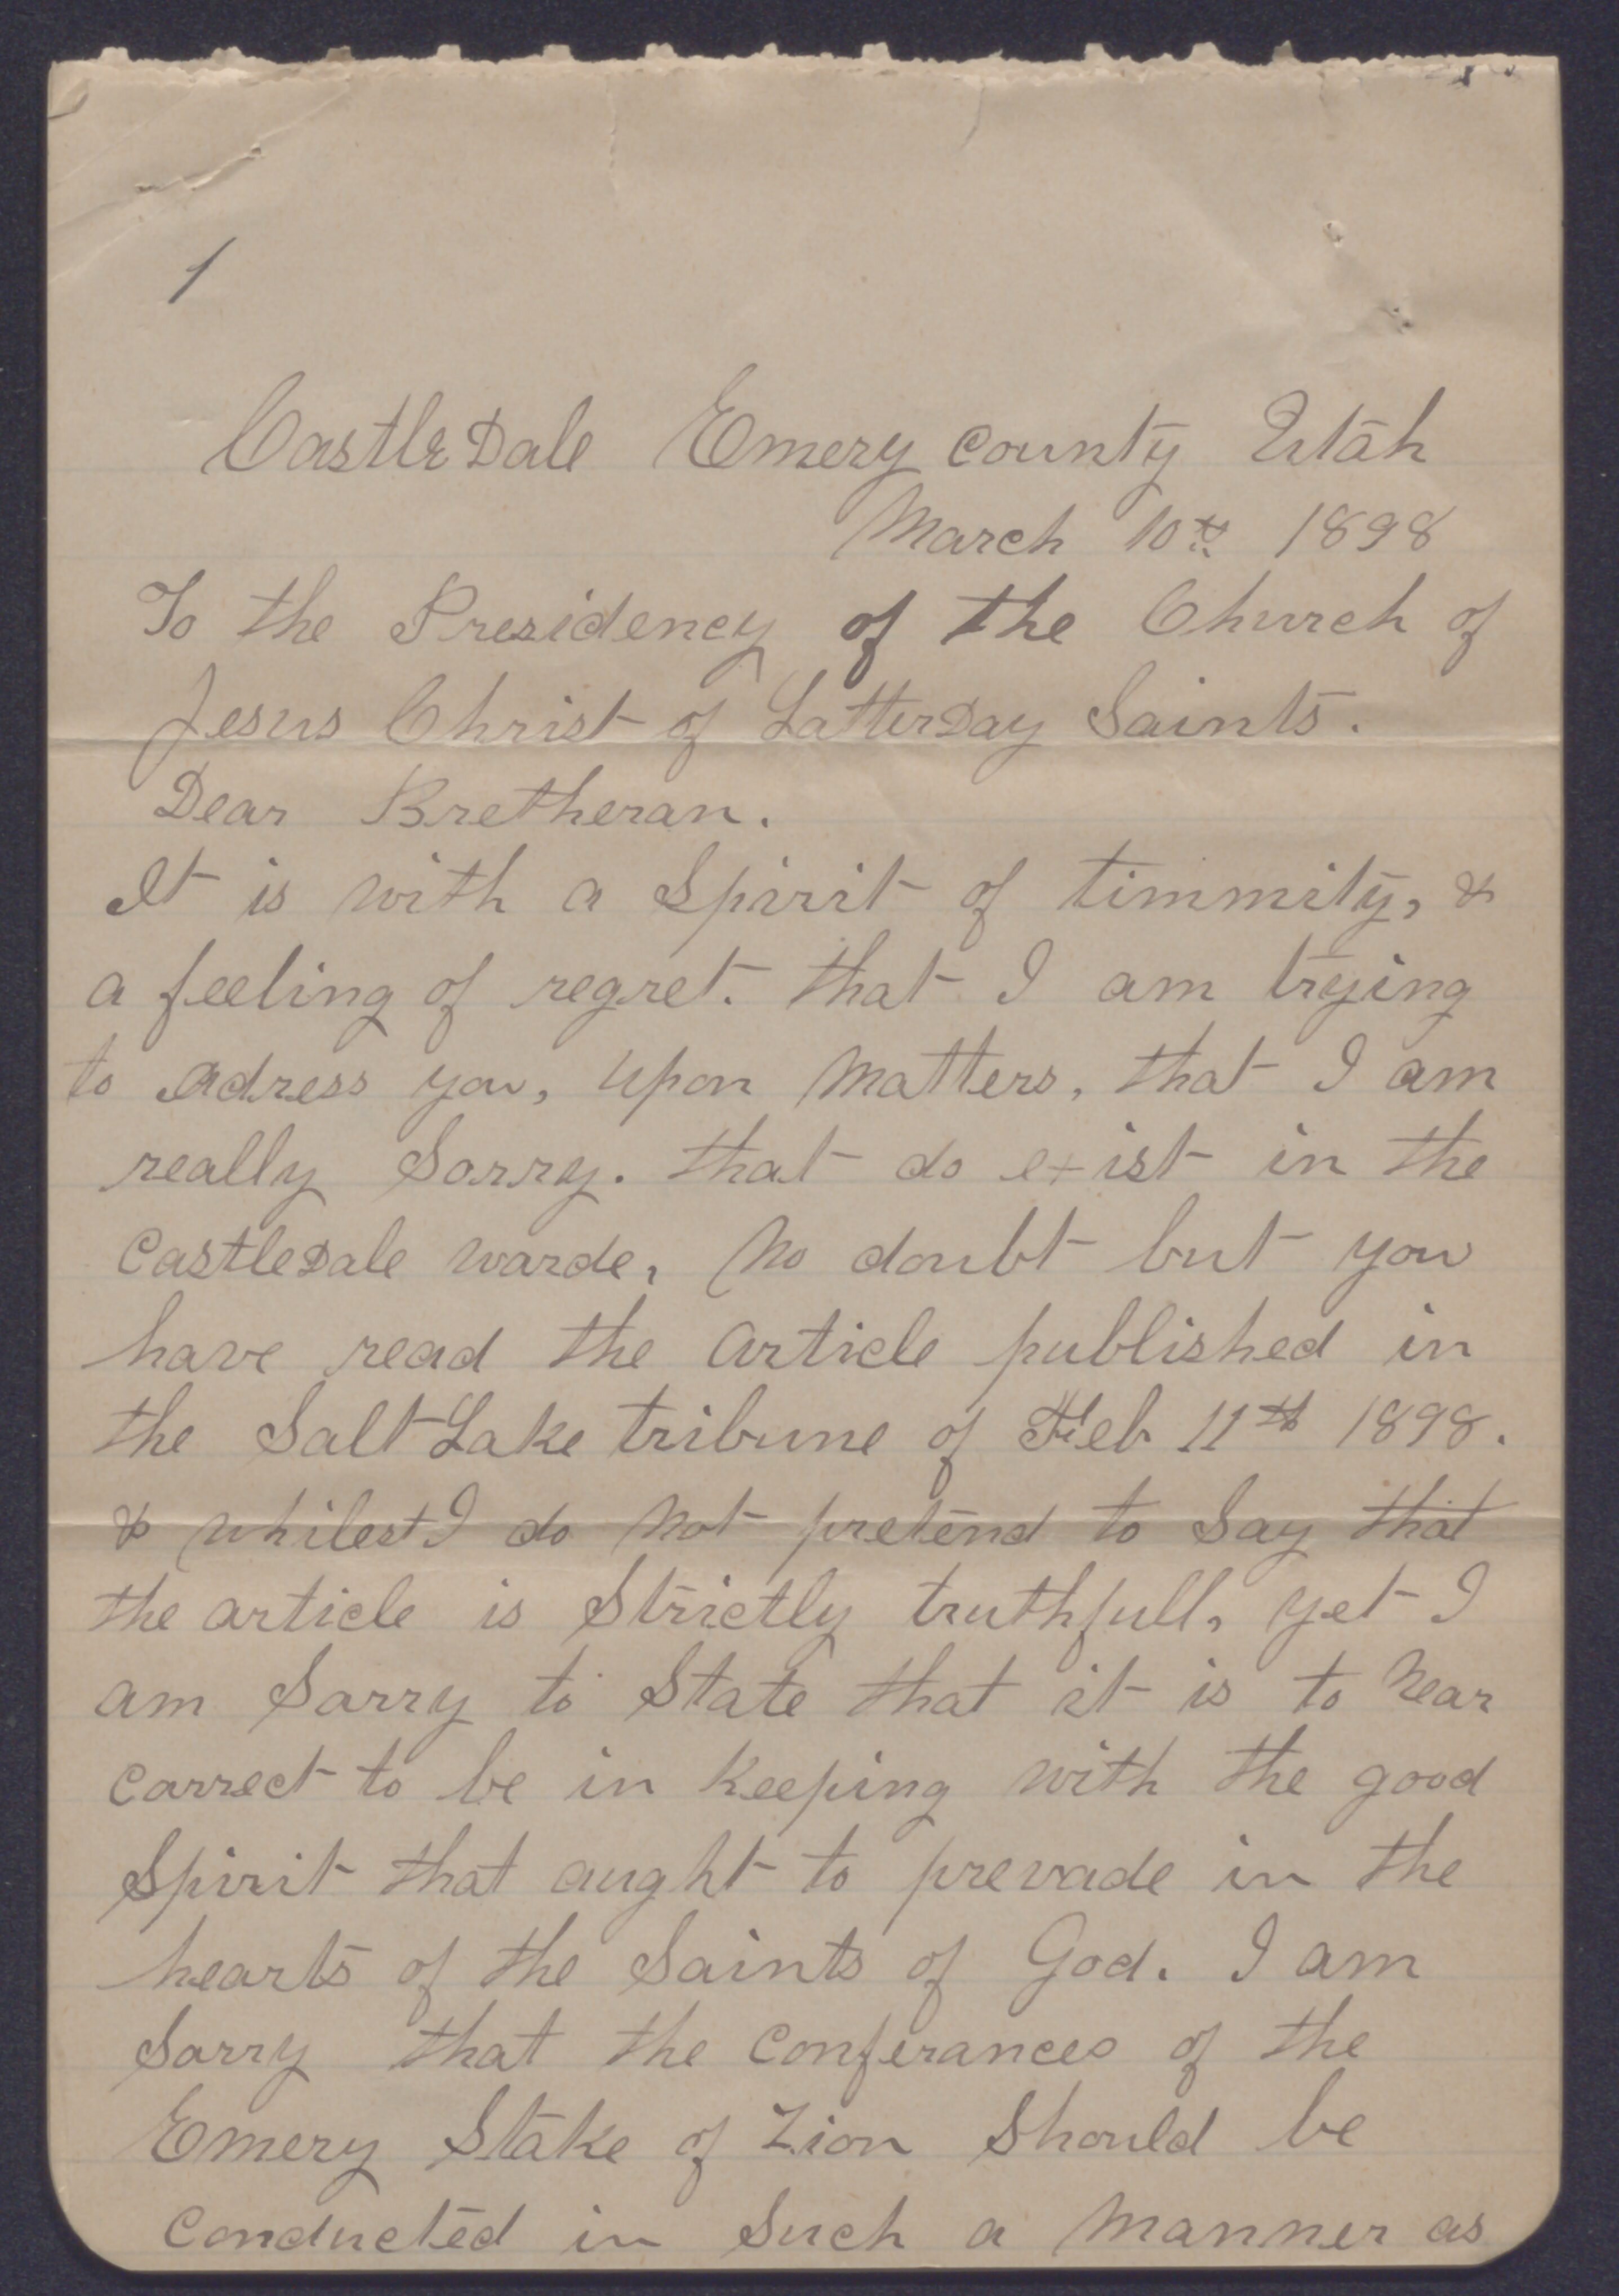 1
CastleDale Emery County Utah
March 10th 1898
To the Presidency of the Church of
Jesus Christ of LatterDay Saints.
Dear Bretheran.
It is with a Spirit of timmity, &
a feeling of regret. that I am trying
to Adress you, upon Matters, that I am
really Sorry. that do exist in the
CastleDale warde, No doubt but you
have read the Article published in
the Salt Lake tribune of Feb 11th 1898.
& whilest I do Not pretend to Say that
the article is Strictly truthfull, yet I
am Sorry to State that it is to Near
Correct to be in Keeping with the good
Spirit that aught to prevade in the
hearts of the Saints of God. I am
Sorry that the Conferances of the
Emery Stake of Zion Should be
Conducted in Such a Manner as